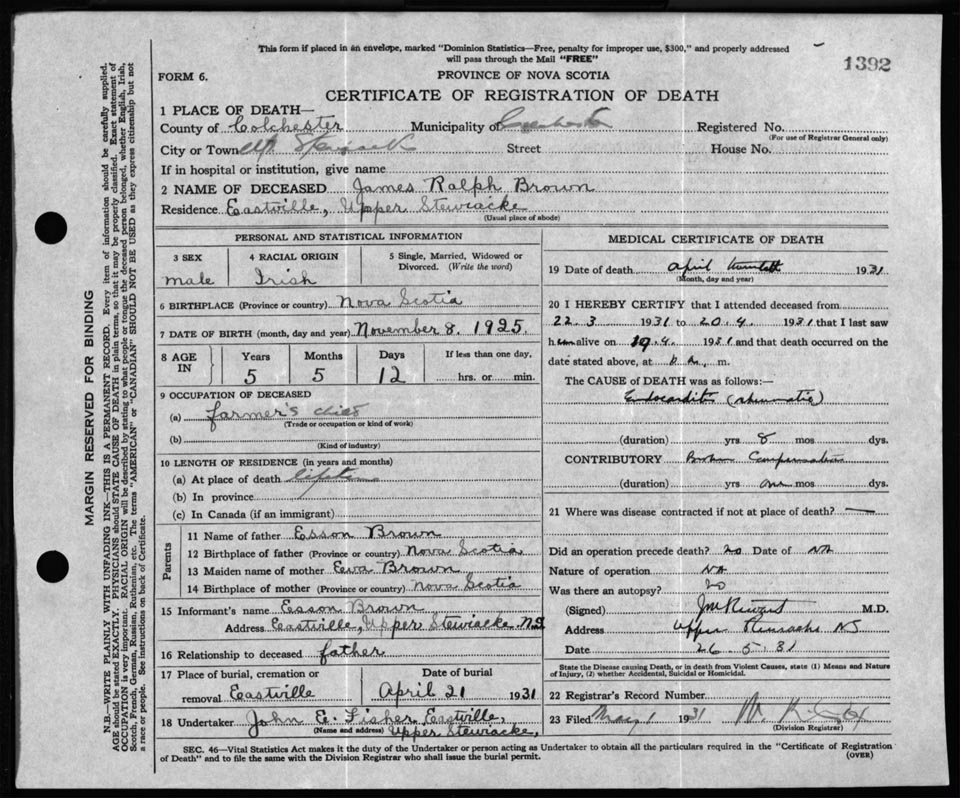 This form if placed in an envelope, marked "Dominion Statistics—Free, penalty for improper use, $300," and properly addressed
will pass through the Mail "FREE"
1392
FORM 6.
PROVINCE OF NOVA SCOTIA
CERTIFICATE OF REGISTRATION OF DEATH
1 PLACE OF DEATH—
County of Colchester Municipality of Registered No.
(For use of Registrar General only)
City or Town Street House No.
If in hospital or institution, give name
2 NAME OF DECEASED James Ralph Brown
Residence Eastville, Upper Stewiacke
(Usual place of abode)
PERSONAL AND STATISTICAL INFORMATION
3 SEX 4 RACIAL ORIGIN 5 Single, Married, Widowed or Divorced. (Write the word)
male Irish
6 BIRTHPLACE (Province or country) Nova Scotia
7 DATE OF BIRTH (month, day and year) November 8, 1925.
8 AGE IN Years Months Days If less than one day,
5 5 12 hrs. or min.
9 OCCUPATION OF DECEASED
(a) farmer's child
(Trade or occupation or kind of work)
(b)
(Kind of industry)
10 LENGTH OF RESIDENCE (in years and months)
(a) At place of death
(b) In province
(c) In Canada (if an immigrant)
Parents
11 Name of father Esson Brown
12 Birthplace of father (Province or country) Nova Scotia
13 Maiden name of mother Eva Brown
14 Birthplace of mother (Province or country) Nova Scotia
15 Informant's name Esson Brown
Address Eastville, Upper Stewiacke N.S
16 Relationship to deceased father
17 Place of burial, cremation or removal Eastville
Date of burial April 21 1931
18 Undertaker John E. Fisher Eastville,
(Name and address) Upper Stewiacke,
MEDICAL CERTIFICATE OF DEATH
19 Date of death April 1931
(Month, day and year)
20 I HEREBY CERTIFY that I attended deceased from
22.3 1931 to 20.4. 1931 that I last saw
h alive on 19.4. 1931 and that death occurred on the
date stated above, at m.
The CAUSE OF DEATH was as follows:—
Endocarditis (rheumatic)
(duration) yrs 8 mos dys.
CONTRIBUTORY Broken Compensation
(duration) yrs one mos dys.
21 Where was disease contracted if not at place of death? —
Did an operation precede death? no Date of NA
Nature of operation NA
Was there an autopsy? no
(Signed) M.D.
Address Upper Stewiacke NS
Date 26.5.31
State the Disease causing Death, or in death from Violent Causes, state (1) Means and Nature
of Injury, (2) whether Accidental, Suicidal or Homicidal.
22 Registrar's Record Number
23 Filed May 1 1931
(Division Registrar)
SEC. 46—Vital Statistics Act makes it the duty of the Undertaker or person acting as Undertaker to obtain all the particulars required in the "Certificate of Registration
of Death" and to file the same with the Division Registrar who shall issue the burial permit.
(OVER)
MARGIN RESERVED FOR BINDING
N.B.—WRITE PLAINLY WITH UNFADING INK—THIS IS A PERMANENT RECORD. Every item of information should be carefully supplied.
AGE should be stated EXACTLY. PHYSICIANS should STATE CAUSE OF DEATH in plain terms, so that it may be properly classified. Exact statement of
OCCUPATION is very important. RACIAL ORIGIN will be described by stating to what people or tongue the deceased person belonged, whether English, Irish,
Scotch, French, German, Russian, Ruthenian, etc. The terms "AMERICAN" or "CANADIAN" SHOULD NOT BE USED as they express citizenship but not
a race or people. See instructions on back of Certificate.